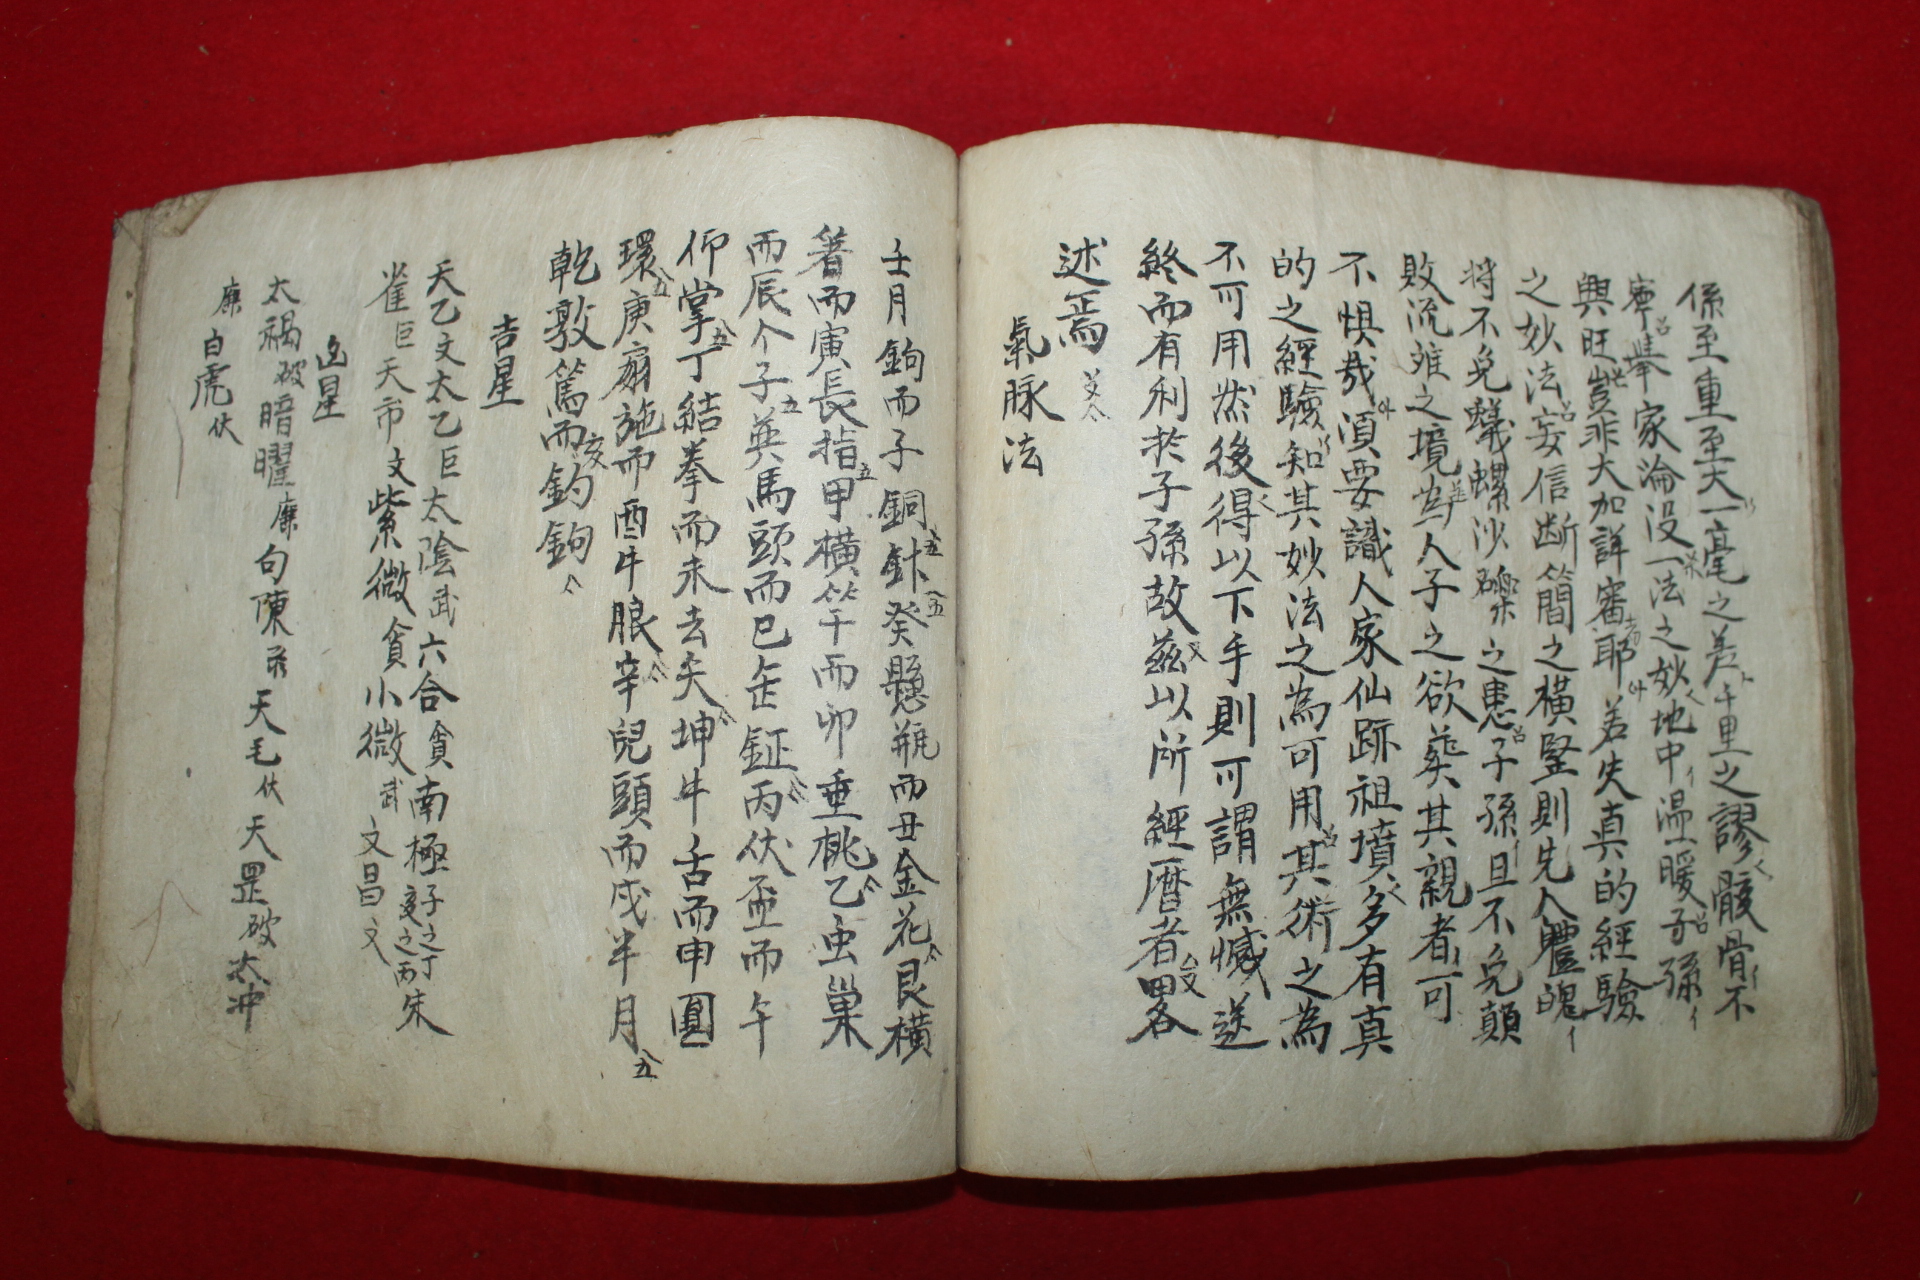 係至重至大一毫之差千里之謬骸骨不
寧擧家淪没一法之妙地中温暖子孫
興旺豈非大加詳審耶差失真的經驗
之妙法妄信断簡之橫竪則先人軆魄
將不免蟻螺沙礫之患子孫且不免顛
敗流離之境為人子之欲葬其親者可
不惧哉湏要識人家仙跡祖墳多有真
的之經驗知其妙法之為可用其術之為
不可用然後得以下手則可謂無憾送
終而有利於子孫故兹以所經暦者畧
述焉
氣脉法
壬月鉤而子銅釱癸懸瓶而丑金花艮橫
箸而寅長指甲橫竿而卯垂桃乙虫巢
而辰个子巽馬頭而巳缶鉦丙伏盃而午
仰掌丁結拳而未去矢坤牛舌而申圓
環庚扇施而酉牛腺辛兒頭而戌半月
乾敦篤而亥釣鉤
吉星
天乙文太乙巨太陰武六合貪南極子之丁亥之丙朱
雀巨天市文紫微貪小微武文昌文
凶星
太禍破暗曜廉句陳天毛伏天罡破太冲
廉白虎伏